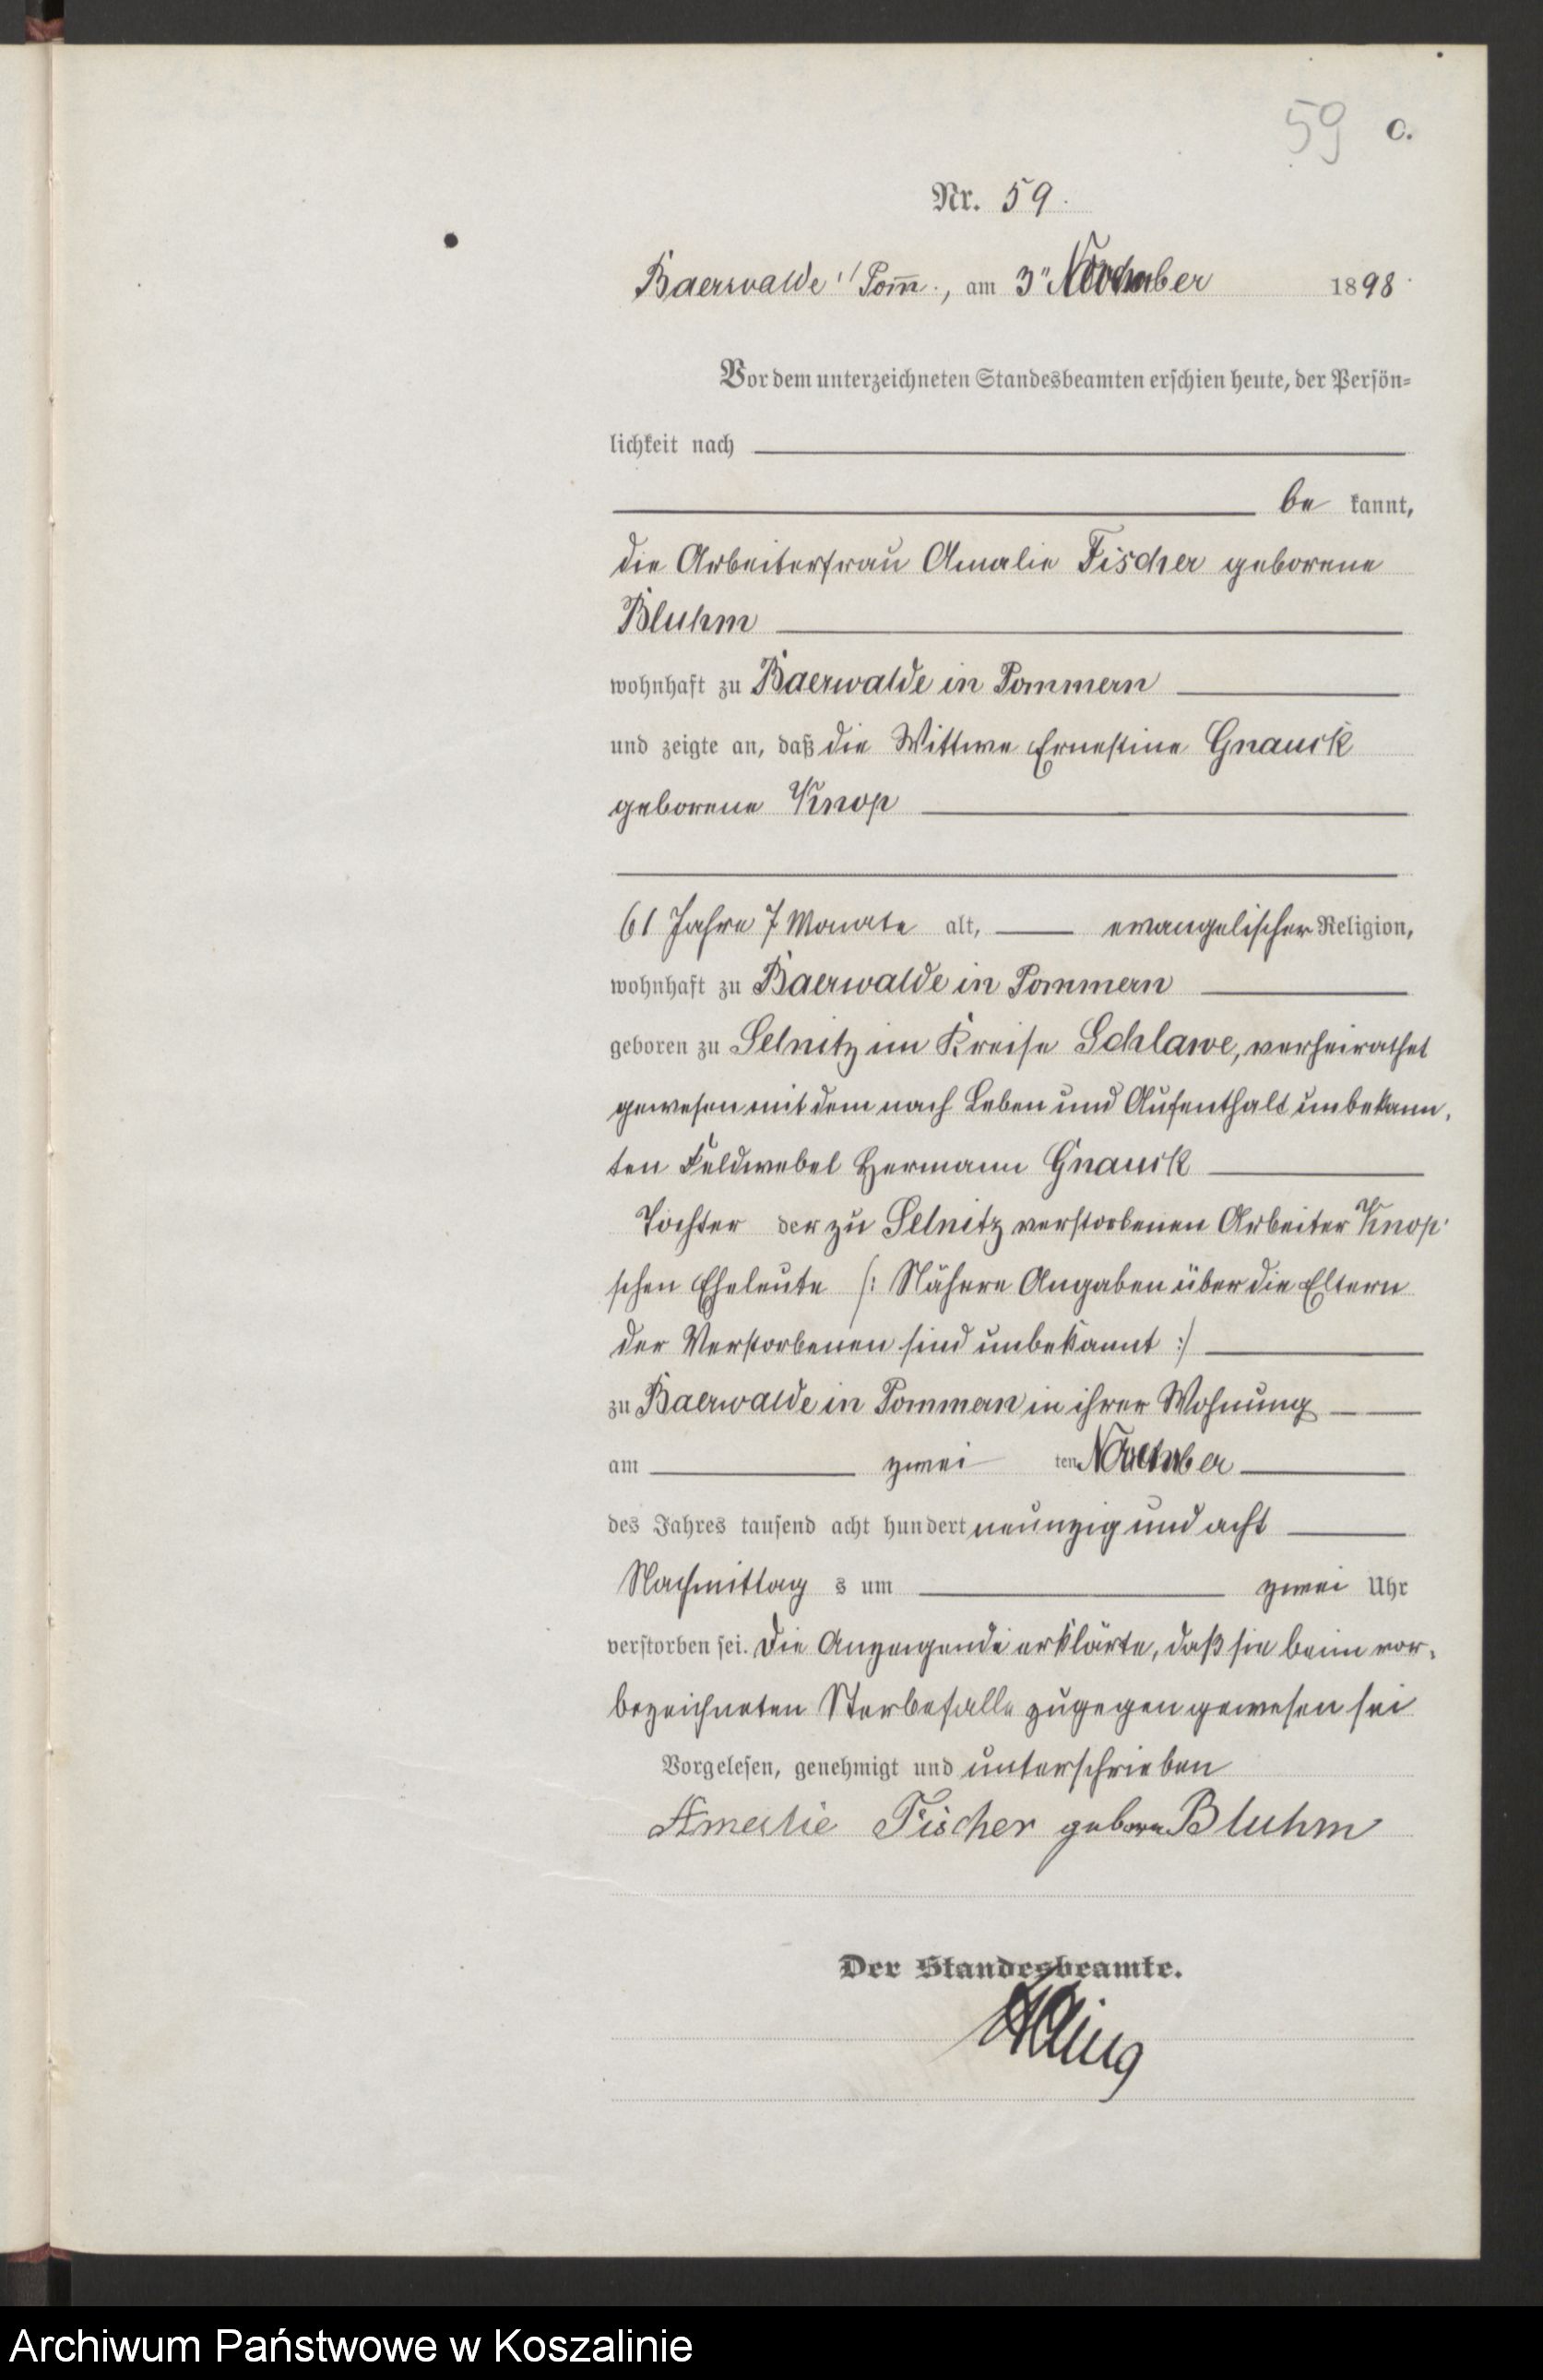 59 C.
Nr. 59.
Baerwalde i/Pom̅., am 3ⁿ November 1898
Vor dem unterzeichneten Standesbeamten erschien heute, der Persön=
lichkeit nach
be kannt,
die Arbeiterfrau Amalie Fischer geborene
Bluhm
wohnhaft zu Baerwalde in Pommern
und zeigte an, daß die Wittwe Ernestine Gnauck
geborene Knop
61 Jahre 7 Monate alt, evangelischer Religion,
wohnhaft zu Baerwalde in Pommern
geboren zu Selnitz im Kreise Schlawe, verheirathet
gewesen mit dem nach Leben und Aufenthalt unbekann-
ten Feldwebel Hermann Gnauck
Tochter der zu Selnitz verstorbenen Arbeiter Knop'
schen Eheleute /: Nähere Angaben über die Eltern
der Verstorbenen sind unbekannt :/
zu Baerwalde in Pommern in ihrer Wohnung
am zwei ten November
des Jahres tausend acht hundert neunzig und acht
Nachmittag s um zwei Uhr
verstorben sei. Die Anzeigende erklärte, daß sie beim vor-
bezeichneten Sterbefalle zugegen gewesen sei
Vorgelesen, genehmigt und unterschrieben
Amalie Fischer geborn Bluhm
Der Standesbeamte.
Archiwum Państwowe w Koszalinie